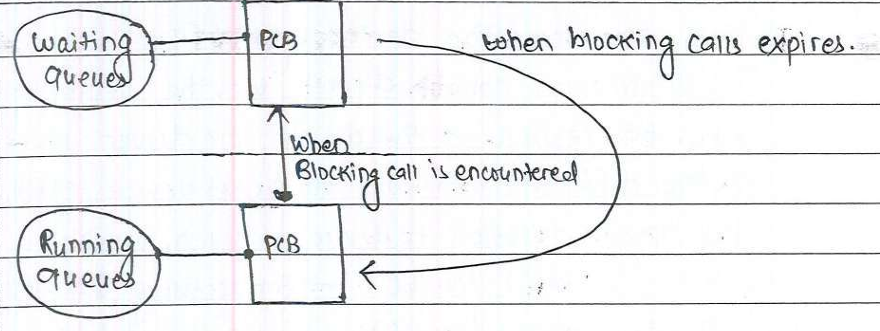 Waiting queues
PCB
when blocking calls expires.
when
Blocking call is encountered
Running queues
PCB